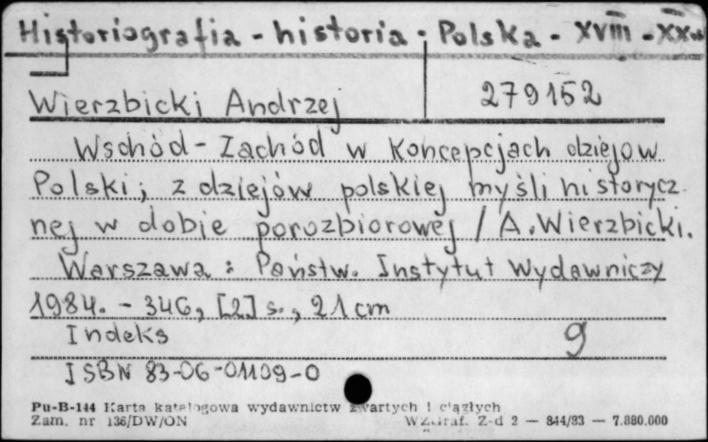 Historiografia - historia - Polska - XVIII - XX w
Wierzbicki Andrzej 279152
Wschód - Zachód w koncepcjach dziejow
Polski; z dziejów polskiej myśli historycz
nej w dobie porozbiorowej / A. Wierzbicki.
Warszawa : Państw. Instytut Wydawniczy
1984. - 346, [2] s., 21 cm
Indeks 9
ISBN 83-06-01109-0
Pu-B-144 Karta katalogowa wydawnictw zwartych i ciągłych
Zam. nr 136/DW/ON WZGraf. Z-d 2 — 844/83 — 7.880.000